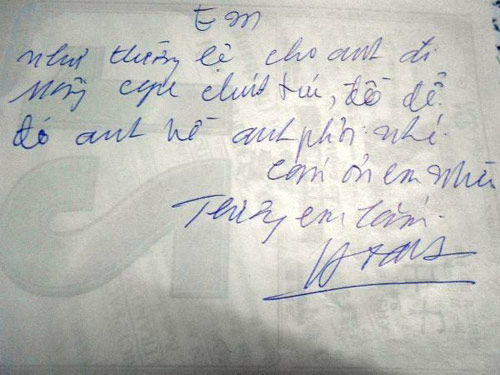 Em
như thường lệ cho anh đi
chút, đồ để
đó anh về anh phơi nhé.
cám ơn em nhiều
Thương em lắm.